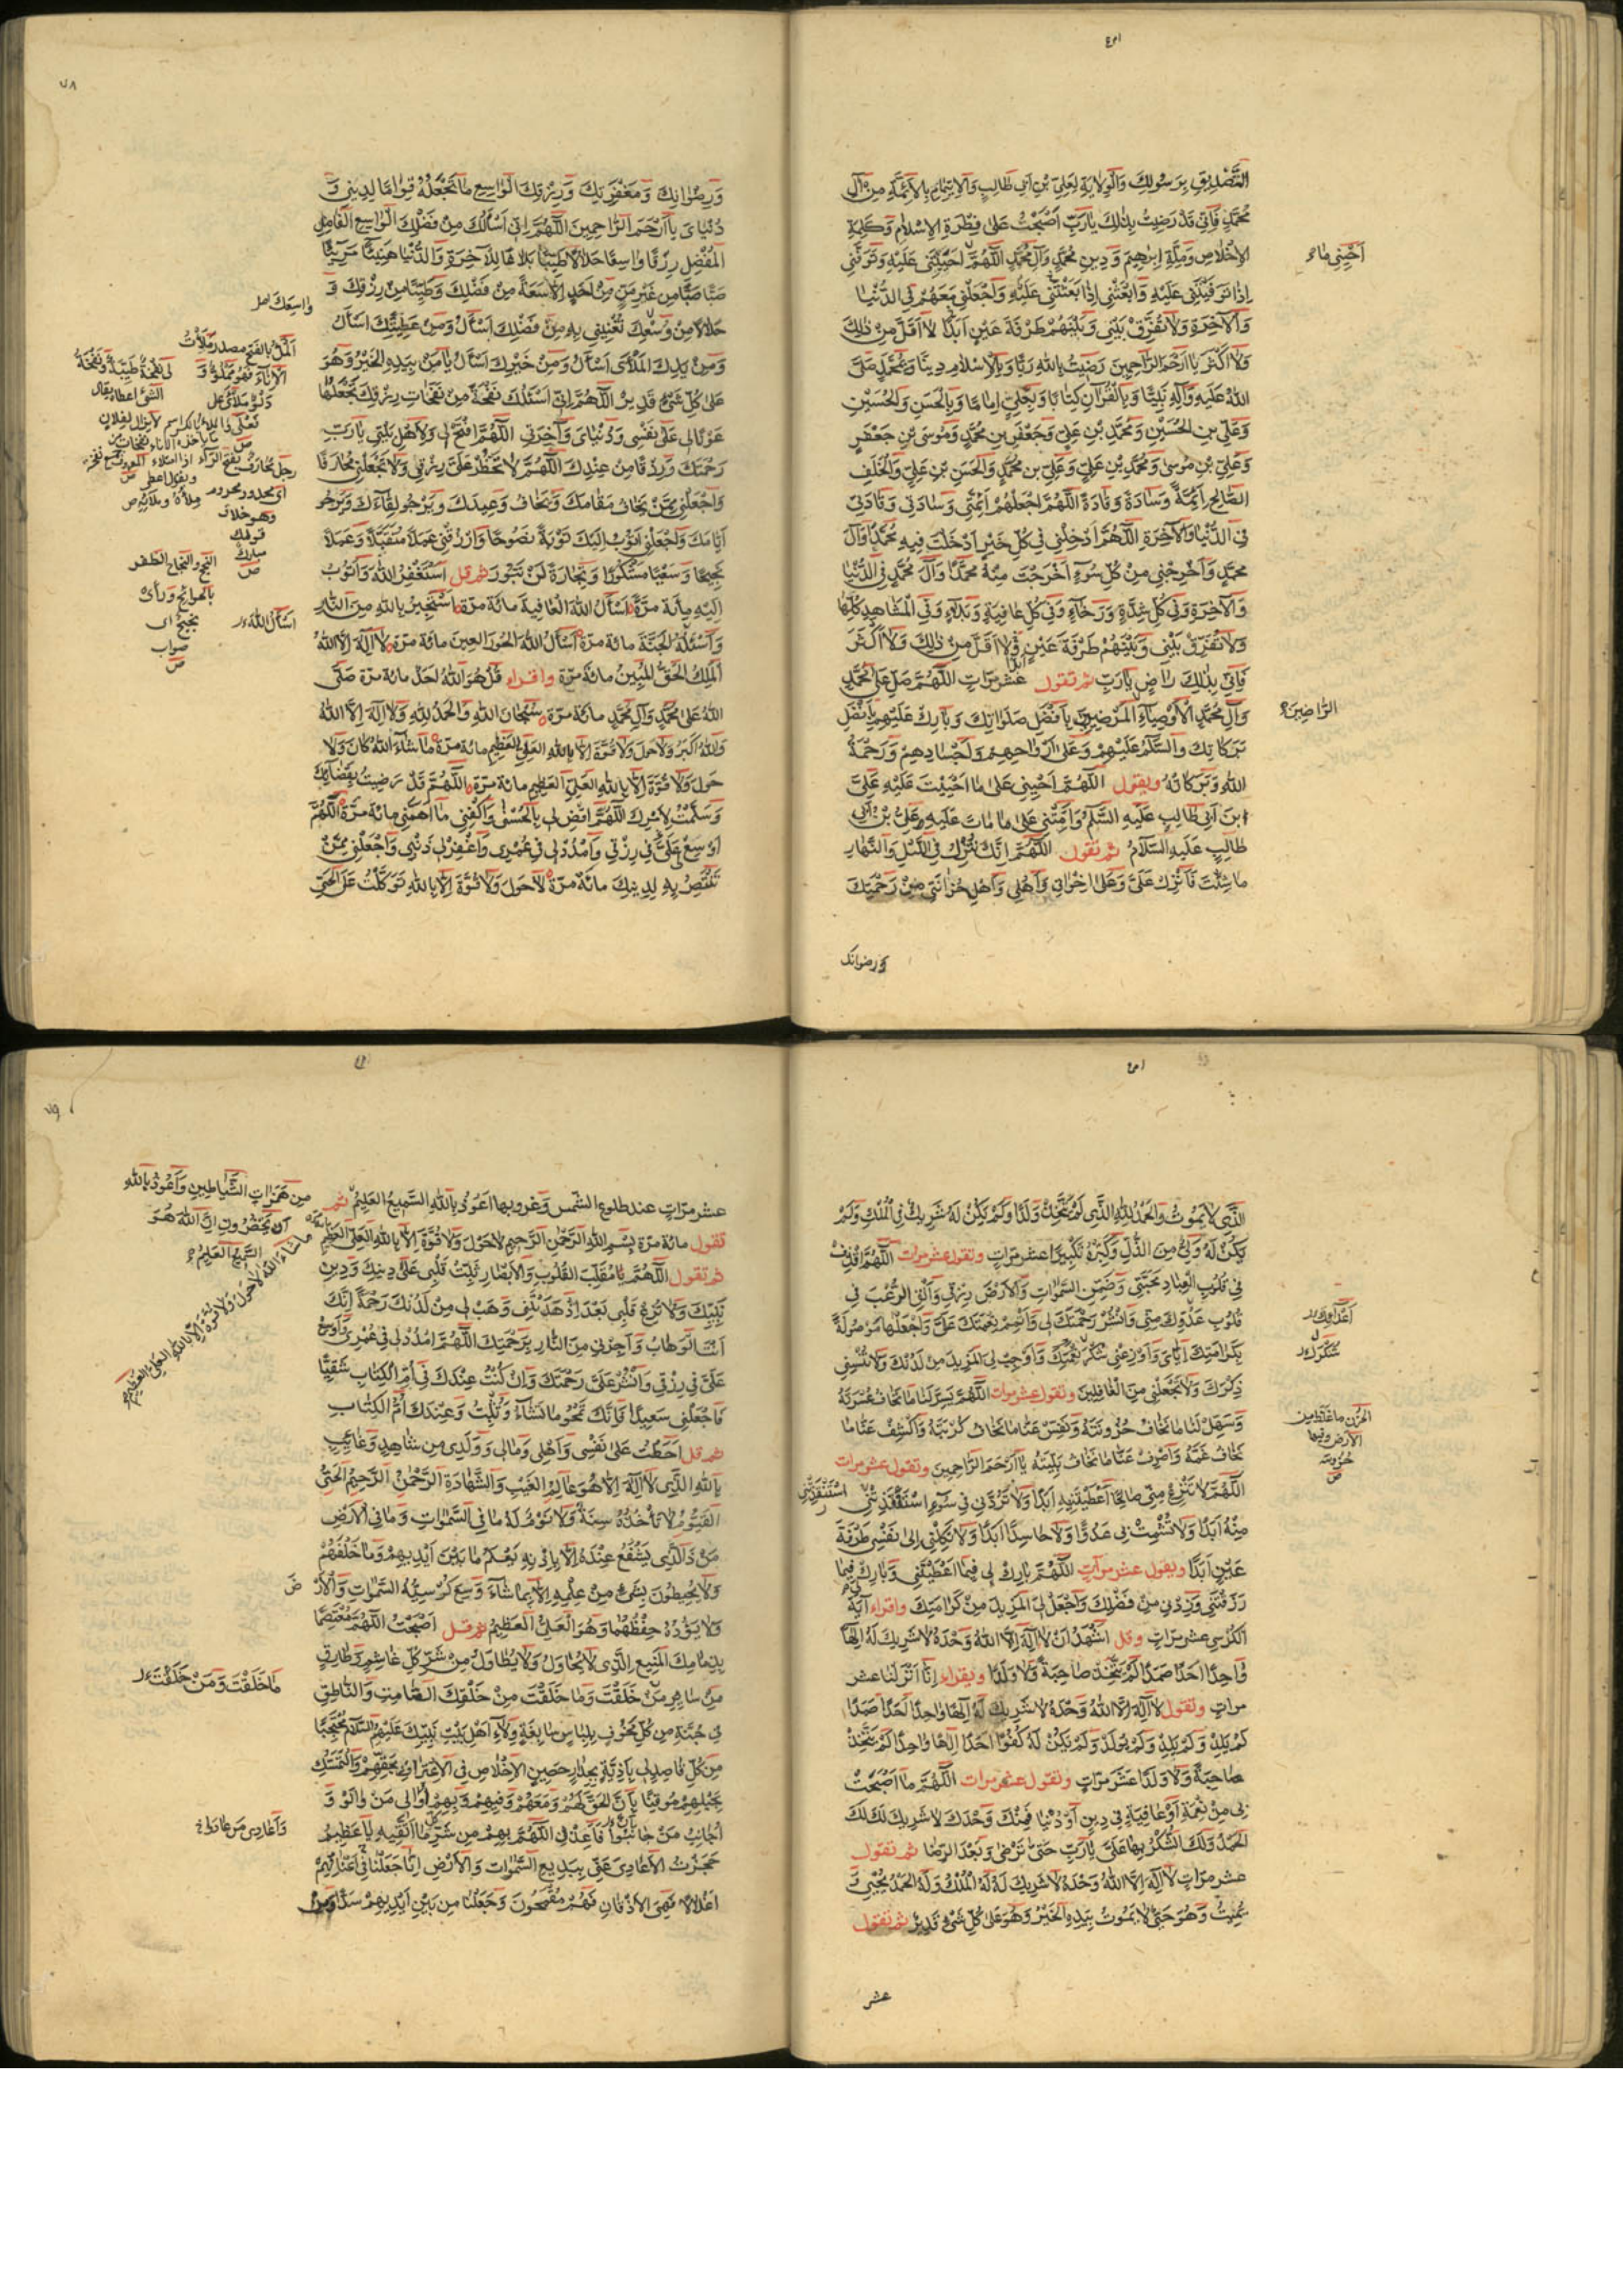 التَّصْدِيقِ بِرَسُولِكَ وَالْوِلَايَةِ لِعَلِيِّ بْنِ اَبِي طَالِبٍ وَالْاِيتِمَامِ بِالْاَئِمَّةِ مِنْ آلِ
مُحَمَّدٍ فَاِنِّي قَدْ رَضِيتُ بِذٰلِكَ يَارَبِّ اَصْبَحْتُ عَلىٰ فِطْرَةِ الْاِسْلَامِ وَكَلِمَةِ
الْاِخْلَاصِ وَمِلَّةِ اِبْرٰهِيمَ وَدِينِ مُحَمَّدٍ وَآلِ مُحَمَّدٍ اَللّٰهُمَّ اَحْيِنِي عَلَيْهِ وَتَوَفَّنِي
اِذَا تَوَفَّيْتَنِي عَلَيْهِ وَابْعَثْنِي اِذَا بَعَثْتَنِي عَلَيْهِ وَاجْعَلْنِي مَعَهُمْ فِي الدُّنْيَا
وَالْآخِرَةِ وَلَا تُفَرِّقْ بَيْنِي وَبَيْنَهُمْ طَرْفَةَ عَيْنٍ اَبَدًا لَا اَقَلَّ مِنْ ذٰلِكَ
وَلَا اَكْثَرَ يَا اَرْحَمَ الرَّاحِمِينَ رَضِيتُ بِاللّٰهِ رَبًّا وَبِالْاِسْلَامِ دِينًا وَبِمُحَمَّدٍ صَلَّى
اللّٰهُ عَلَيْهِ وَآلِهِ نَبِيًّا وَبِالْقُرْآنِ كِتَابًا وَبِعَلِيٍّ اِمَامًا وَبِالْحَسَنِ وَالْحُسَيْنِ
وَعَلِيِّ بْنِ الْحُسَيْنِ وَمُحَمَّدِ بْنِ عَلِيٍّ وَجَعْفَرِ بْنِ مُحَمَّدٍ وَمُوسَى بْنِ جَعْفَرٍ
وَعَلِيِّ بْنِ مُوسىٰ وَمُحَمَّدِ بْنِ عَلِيٍّ وَعَلِيِّ بْنِ مُحَمَّدٍ وَالْحَسَنِ بْنِ عَلِيٍّ وَالْخَلَفِ
الصَّالِحِ اَئِمَّةً وَسَادَةً وَقَادَةً اَللّٰهُمَّ اجْعَلْهُمْ اَئِمَّتِي وَسَادَتِي وَقَادَتِي
فِي الدُّنْيَا وَالْآخِرَةِ اَللّٰهُمَّ اَدْخِلْنِي فِي كُلِّ خَيْرٍ اَدْخَلْتَ فِيهِ مُحَمَّدًا وَآلَ
مُحَمَّدٍ وَاَخْرِجْنِي مِنْ كُلِّ سُوءٍ اَخْرَجْتَ مِنْهُ مُحَمَّدًا وَآلَ مُحَمَّدٍ فِي الدُّنْيَا
وَالْآخِرَةِ وَفِي كُلِّ شِدَّةٍ وَرَخَاءٍ وَفِي كُلِّ عَافِيَةٍ وَبَلَاءٍ وَفِي الْمَشَاهِدِ كُلِّهَا
وَلَا تُفَرِّقْ بَيْنِي وَبَيْنَهُمْ طَرْفَةَ عَيْنٍ اَبَدًا وَلَا اَقَلَّ مِنْ ذٰلِكَ وَلَا اَكْثَرَ
فَاِنِّي بِذٰلِكَ رَاضٍ يَارَبِّ ثم تقول عَشْرَ مَرَّاتٍ اَللّٰهُمَّ صَلِّ عَلىٰ مُحَمَّدٍ
وَآلِ مُحَمَّدٍ الْاَوْصِيَاءِ الْمَرْضِيِّينَ بِاَفْضَلِ صَلَوَاتِكَ وَبَارِكْ عَلَيْهِمْ بِاَفْضَلِ
بَرَكَاتِكَ وَالسَّلَامُ عَلَيْهِمْ وَعَلىٰ اَرْوَاحِهِمْ وَاَجْسَادِهِمْ وَرَحْمَةُ
اللّٰهِ وَبَرَكَاتُهُ ويقول اَللّٰهُمَّ اَحْيِنِي عَلىٰ مَا اَحْيَيْتَ عَلَيْهِ عَلِيَّ
ابْنَ اَبِي طَالِبٍ عَلَيْهِ السَّلَامُ وَاَمِتْنِي عَلىٰ مَا مَاتَ عَلَيْهِ عَلِيُّ بْنُ اَبِي
طَالِبٍ عَلَيْهِ السَّلَامُ ثم تقول اَللّٰهُمَّ اِنَّكَ تُنْزِلُ فِي اللَّيْلِ وَالنَّهَارِ
مَا شِئْتَ فَاَنْزِلْ عَلَيَّ وَعَلىٰ اِخْوَانِي وَاَهْلِي وَاَهْلِ حُزَانَتِي مِنْ رَحْمَتِكَ
ورضوانك
اَحْيَيْتَنِي مَا
الرَّاضِينَ
٧٨
وَرِضْوَانِكَ وَمَغْفِرَتِكَ وَرِزْقِكَ الْوَاسِعِ مَا تَجْعَلُهُ قِوَامًا لِدِينِي وَ
دُنْيَايَ يَا اَرْحَمَ الرَّاحِمِينَ اَللّٰهُمَّ اِنِّي اَسْاَلُكَ مِنْ فَضْلِكَ الْوَاسِعِ الْفَاضِلِ
الْمُفْضِلِ رِزْقًا وَاسِعًا حَلَالًا طَيِّبًا بَلَاغًا لِلْآخِرَةِ وَالدُّنْيَا هَنِيئًا مَرِيئًا
صَبًّا صَبًّا مِنْ غَيْرِ مَنٍّ مِنْ اَحَدٍ اِلَّا سَعَةً مِنْ فَضْلِكَ وَطَيِّبًا مِنْ رِزْقِكَ وَ
حَلَالًا مِنْ وُسْعِكَ تُغْنِينِي بِهِ مِنْ فَضْلِكَ اَسْاَلُ وَمِنْ عَطِيَّتِكَ اَسْاَلُ
وَمِنْ يَدِكَ الْمَلْأىٰ اَسْاَلُ وَمِنْ خَيْرِكَ اَسْاَلُ يَا مَنْ بِيَدِهِ الْخَيْرُ وَهُوَ
عَلىٰ كُلِّ شَيْءٍ قَدِيرٌ اَللّٰهُمَّ اِنِّي اَسْئَلُكَ نَفْحَةً مِنْ نَفَحَاتِ رِزْقِكَ تَجْعَلُهَا
عَوْنًا لِي عَلىٰ نَفْسِي وَدُنْيَايَ وَآخِرَتِي اَللّٰهُمَّ افْتَحْ لِي وَلِاَهْلِ بَيْتِي بَابَ
رَحْمَتِكَ وَرِزْقًا مِنْ عِنْدِكَ اَللّٰهُمَّ لَا تَحْظُرْ عَلَيَّ رِزْقِي وَلَا تَجْعَلْنِي مُحَارَفًا
وَاجْعَلْنِي مِمَّنْ يَخَافُ مَقَامَكَ وَيَخَافُ وَعِيدَكَ وَيَرْجُو لِقَاءَكَ وَيَرْجُو
اَيَّامَكَ وَاجْعَلْنِي اَتُوبُ اِلَيْكَ تَوْبَةً نَصُوحًا وَارْزُقْنِي عَمَلًا مُتَقَبَّلًا وَعَمَلًا
نَجِيحًا وَسَعْيًا مَشْكُورًا وَتِجَارَةً لَنْ تَبُورَ ثم قل اَسْتَغْفِرُ اللّٰهَ وَاَتُوبُ
اِلَيْهِ مِائَةَ مَرَّةٍ اَسْاَلُ اللّٰهَ الْعَافِيَةَ مائة مرّة اَسْتَجِيرُ بِاللّٰهِ مِنَ النَّارِ
وَاَسْئَلُهُ الْجَنَّةَ مائة مرة اَسْاَلُ اللّٰهَ الْحُورَ الْعِينَ مائة مرّة لَا اِلٰهَ اِلَّا اللّٰهُ
الْمَلِكُ الْحَقُّ الْمُبِينُ مائة مرّة واقراء قُلْ هُوَ اللّٰهُ اَحَدٌ مائة مرة صَلَّى
اللّٰهُ عَلىٰ مُحَمَّدٍ وَآلِ مُحَمَّدٍ مائة مرّة سُبْحَانَ اللّٰهِ وَالْحَمْدُ لِلّٰهِ وَلَا اِلٰهَ اِلَّا اللّٰهُ
وَاللّٰهُ اَكْبَرُ وَلَا حَوْلَ وَلَا قُوَّةَ اِلَّا بِاللّٰهِ الْعَلِيِّ الْعَظِيمِ مائة مرّة مَا شَاءَ اللّٰهُ كَانَ وَلَا
حَوْلَ وَلَا قُوَّةَ اِلَّا بِاللّٰهِ الْعَلِيِّ الْعَظِيمِ مائة مرّة اَللّٰهُمَّ قَدْ رَضِيتُ بِقَضَائِكَ
وَسَلَّمْتُ لِاَمْرِكَ اَللّٰهُمَّ اقْضِ لِي بِالْحُسْنىٰ وَاكْفِنِي مَا اَهَمَّنِي مائة مرّة اَللّٰهُمَّ
اَوْسِعْ عَلَيَّ فِي رِزْقِي وَامْدُدْ لِي فِي عُمْرِي وَاغْفِرْ لِي ذَنْبِي وَاجْعَلْنِي مِمَّنْ
تَنْتَصِرُ بِهِ لِدِينِكَ مائة مرّة لَا حَوْلَ وَلَا قُوَّةَ اِلَّا بِاللّٰهِ تَوَكَّلْتُ عَلَى الْحَيِّ
اَلْمَلْأُ بالفتح مصدر مَلَأْتُ
الْاِنَاءَ فهو مَمْلُوٌّ وَ
دَلْوٌ مَلْأىٰ
النجح والنجاح الظفر
بالحوائج ورأى
نجيح اى
صواب
اَسْاَلُ اللّٰهَ
اَلَّذِي لَا يَمُوتُ وَالْحَمْدُ لِلّٰهِ الَّذِي لَمْ يَتَّخِذْ وَلَدًا وَلَمْ يَكُنْ لَهُ شَرِيكٌ فِي الْمُلْكِ وَلَمْ
يَكُنْ لَهُ وَلِيٌّ مِنَ الذُّلِّ وَكَبِّرْهُ تَكْبِيرًا عشر مرّاتٍ وتقول عشر مرات اَللّٰهُمَّ اقْذِفْ
فِي قُلُوبِ الْعِبَادِ مَحَبَّتِي وَضَمِّنِ السَّمٰوَاتِ وَالْاَرْضَ رِزْقِي وَاَلْقِ الرُّعْبَ فِي
قُلُوبِ عَدُوِّكَ مِنِّي وَانْشُرْ رَحْمَتَكَ لِي وَاَتْمِمْ نِعْمَتَكَ عَلَيَّ وَاجْعَلْهَا مَوْصُولَةً
بِكَرَامَتِكَ اِيَّايَ وَاَوْزِعْنِي شُكْرَ نِعْمَتِكَ وَاَوْجِبْ لِيَ الْمَزِيدَ مِنْ لَدُنْكَ وَلَا تُنْسِنِي
ذِكْرَكَ وَلَا تَجْعَلْنِي مِنَ الْغَافِلِينَ وتقول عشر مرات اَللّٰهُمَّ يَسِّرْ لَنَا مَا نَخَافُ عُسْرَتَهُ
وَسَهِّلْ لَنَا مَا نَخَافُ حُزُونَتَهُ وَنَفِّسْ عَنَّا مَا نَخَافُ كُرْبَتَهُ وَاكْشِفْ عَنَّا مَا
نَخَافُ غَمَّهُ وَاصْرِفْ عَنَّا مَا نَخَافُ بَلِيَّتَهُ يَا اَرْحَمَ الرَّاحِمِينَ وتقول عشر مرات
اَللّٰهُمَّ لَا تَنْزِعْ مِنِّي صَالِحًا اَعْطَيْتَنِيهِ اَبَدًا وَلَا تَرُدَّنِي فِي سُوءٍ اسْتَنْقَذْتَنِي
مِنْهُ اَبَدًا وَلَا تُشْمِتْ بِي عَدُوًّا وَلَا حَاسِدًا اَبَدًا وَلَا تَكِلْنِي اِلىٰ نَفْسِي طَرْفَةَ
عَيْنٍ اَبَدًا ويقول عشر مرّاتٍ اَللّٰهُمَّ بَارِكْ لِي فِيمَا اَعْطَيْتَنِي وَبَارِكْ فِيمَا
رَزَقْتَنِي وَزِدْنِي مِنْ فَضْلِكَ وَاجْعَلْ لِيَ الْمَزِيدَ مِنْ كَرَامَتِكَ واقراء آيَةَ
الْكُرْسِي عشر مرّاتٍ وقل اَشْهَدُ اَنْ لَا اِلٰهَ اِلَّا اللّٰهُ وَحْدَهُ لَا شَرِيكَ لَهُ اِلٰهًا
وَاحِدًا اَحَدًا صَمَدًا لَمْ يَتَّخِذْ صَاحِبَةً وَلَا وَلَدًا ويقراء اِنَّا اَنْزَلْنَا عشر
مرات وتقول لَا اِلٰهَ اِلَّا اللّٰهُ وَحْدَهُ لَا شَرِيكَ لَهُ اِلٰهًا وَاحِدًا اَحَدًا صَمَدًا
لَمْ يَلِدْ وَلَمْ يُولَدْ وَلَمْ يَكُنْ لَهُ كُفُوًا اَحَدٌ اِلٰهًا وَاحِدًا لَمْ يَتَّخِذْ
صَاحِبَةً وَلَا وَلَدًا عَشْرَ مَرَّاتٍ وتقول عشر مرات اَللّٰهُمَّ مَا اَصْبَحَتْ
بِي مِنْ نِعْمَةٍ اَوْ عَافِيَةٍ فِي دِينٍ اَوْ دُنْيَا فَمِنْكَ وَحْدَكَ لَا شَرِيكَ لَكَ لَكَ
الْحَمْدُ وَلَكَ الشُّكْرُ بِهَا عَلَيَّ يَارَبِّ حَتّىٰ تَرْضىٰ وَبَعْدَ الرِّضَا ثم تقول
عشر مرّاتٍ لَا اِلٰهَ اِلَّا اللّٰهُ وَحْدَهُ لَا شَرِيكَ لَهُ لَهُ الْمُلْكُ وَلَهُ الْحَمْدُ يُحْيِي وَ
يُمِيتُ وَهُوَ حَيٌّ لَا يَمُوتُ بِيَدِهِ الْخَيْرُ وَهُوَ عَلىٰ كُلِّ شَيْءٍ قَدِيرٌ ثم تقول
عشر
اَعْدَائِكَ
شُكْرَكَ
الحزن ما غلظ من
الارض وفيها
حزونة
ص
اسْتَنْقَذْتَنِي
٧٩
عشر مرّاتٍ عند طلوع الشّمس وغروبها اَعُوذُ بِاللّٰهِ السَّمِيعِ الْعَلِيمِ ثم
تقول مائة مرّة بِسْمِ اللّٰهِ الرَّحْمٰنِ الرَّحِيمِ لَا حَوْلَ وَلَا قُوَّةَ اِلَّا بِاللّٰهِ الْعَلِيِّ الْعَظِيمِ
ثم تقول اَللّٰهُمَّ يَا مُقَلِّبَ الْقُلُوبِ وَالْاَبْصَارِ ثَبِّتْ قَلْبِي عَلىٰ دِينِكَ وَدِينِ
نَبِيِّكَ وَلَا تُزِغْ قَلْبِي بَعْدَ اِذْ هَدَيْتَنِي وَهَبْ لِي مِنْ لَدُنْكَ رَحْمَةً اِنَّكَ
اَنْتَ الْوَهَّابُ وَاَجِرْنِي مِنَ النَّارِ بِرَحْمَتِكَ اَللّٰهُمَّ امْدُدْ لِي فِي عُمْرِي وَاَوْسِعْ
عَلَيَّ فِي رِزْقِي وَانْشُرْ عَلَيَّ رَحْمَتَكَ وَاِنْ كُنْتُ عِنْدَكَ فِي اُمِّ الْكِتَابِ شَقِيًّا
فَاجْعَلْنِي سَعِيدًا فَاِنَّكَ تَمْحُو مَا تَشَاءُ وَتُثْبِتُ وَعِنْدَكَ اُمُّ الْكِتَابِ
ثم قل اَحَطْتُ عَلىٰ نَفْسِي وَاَهْلِي وَمَالِي وَوُلْدِي مِنْ شَاهِدٍ وَغَائِبٍ
بِاللّٰهِ الَّذِي لَا اِلٰهَ اِلَّا هُوَ عَالِمُ الْغَيْبِ وَالشَّهَادَةِ الرَّحْمٰنُ الرَّحِيمُ الْحَيُّ
الْقَيُّومُ لَا تَأْخُذُهُ سِنَةٌ وَلَا نَوْمٌ لَهُ مَا فِي السَّمٰوَاتِ وَمَا فِي الْاَرْضِ
مَنْ ذَا الَّذِي يَشْفَعُ عِنْدَهُ اِلَّا بِاِذْنِهِ يَعْلَمُ مَا بَيْنَ اَيْدِيهِمْ وَمَا خَلْفَهُمْ
وَلَا يُحِيطُونَ بِشَيْءٍ مِنْ عِلْمِهِ اِلَّا بِمَا شَاءَ وَسِعَ كُرْسِيُّهُ السَّمٰوَاتِ وَالْاَرْضَ
وَلَا يَؤُدُهُ حِفْظُهُمَا وَهُوَ الْعَلِيُّ الْعَظِيمُ ثم قل اَصْبَحْتُ اَللّٰهُمَّ مُعْتَصِمًا
بِذِمَامِكَ الْمَنِيعِ الَّذِي لَا يُحَاوَلُ وَلَا يُطَاوَلُ مِنْ شَرِّ كُلِّ غَاشِمٍ وَطَارِقٍ
مِنْ سَائِرِ مَنْ خَلَقْتَ وَمَا خَلَقْتَ مِنْ خَلْقِكَ الصَّامِتِ وَالنَّاطِقِ
فِي جُنَّةٍ مِنْ كُلِّ مَخُوفٍ بِلِبَاسٍ سَابِغَةٍ وَلَاءِ اَهْلِ بَيْتِ نَبِيِّكَ عَلَيْهِمُ السَّلَامُ مُحْتَجِبًا
مِنْ كُلِّ قَاصِدٍ لِي بِاَذِيَّةٍ بِجِدَارٍ حَصِينِ الْاِخْلَاصِ فِي الْاِعْتِرَافِ بِحَقِّهِمْ وَالتَّمَسُّكِ
بِحَبْلِهِمْ مُوقِنًا بِاَنَّ الْحَقَّ لَهُمْ وَمَعَهُمْ وَفِيهِمْ وَبِهِمْ اُوَالِي مَنْ وَالَوْا وَ
اُجَانِبُ مَنْ جَانَبُوا فَاَعِذْنِي اَللّٰهُمَّ بِهِمْ مِنْ شَرِّ مَا اَتَّقِيهِ يَا عَظِيمُ
حَجَزْتُ الْاَعَادِيَ عَنِّي بِبَدِيعِ السَّمٰوَاتِ وَالْاَرْضِ اِنَّا جَعَلْنَا فِي اَعْنَاقِهِمْ
اَغْلَالًا فَهِيَ اِلَى الْاَذْقَانِ فَهُمْ مُقْمَحُونَ وَجَعَلْنَا مِنْ بَيْنِ اَيْدِيهِمْ سَدًّا وَمِنْ
مِنْ هَمَزَاتِ الشَّيَاطِينِ وَاَعُوذُ بِاللّٰهِ
اَنْ يَحْضُرُونِ اِنَّ اللّٰهَ هُوَ
السَّمِيعُ الْعَلِيمُ
مَا شَاءَ اللّٰهُ لَا حَوْلَ وَلَا قُوَّةَ اِلَّا بِاللّٰهِ الْعَلِيِّ الْعَظِيمِ
مَا خَلَقْتَ وَمَنْ خَلَقْتَ
وَاُعَادِي مَنْ عَادَوْا